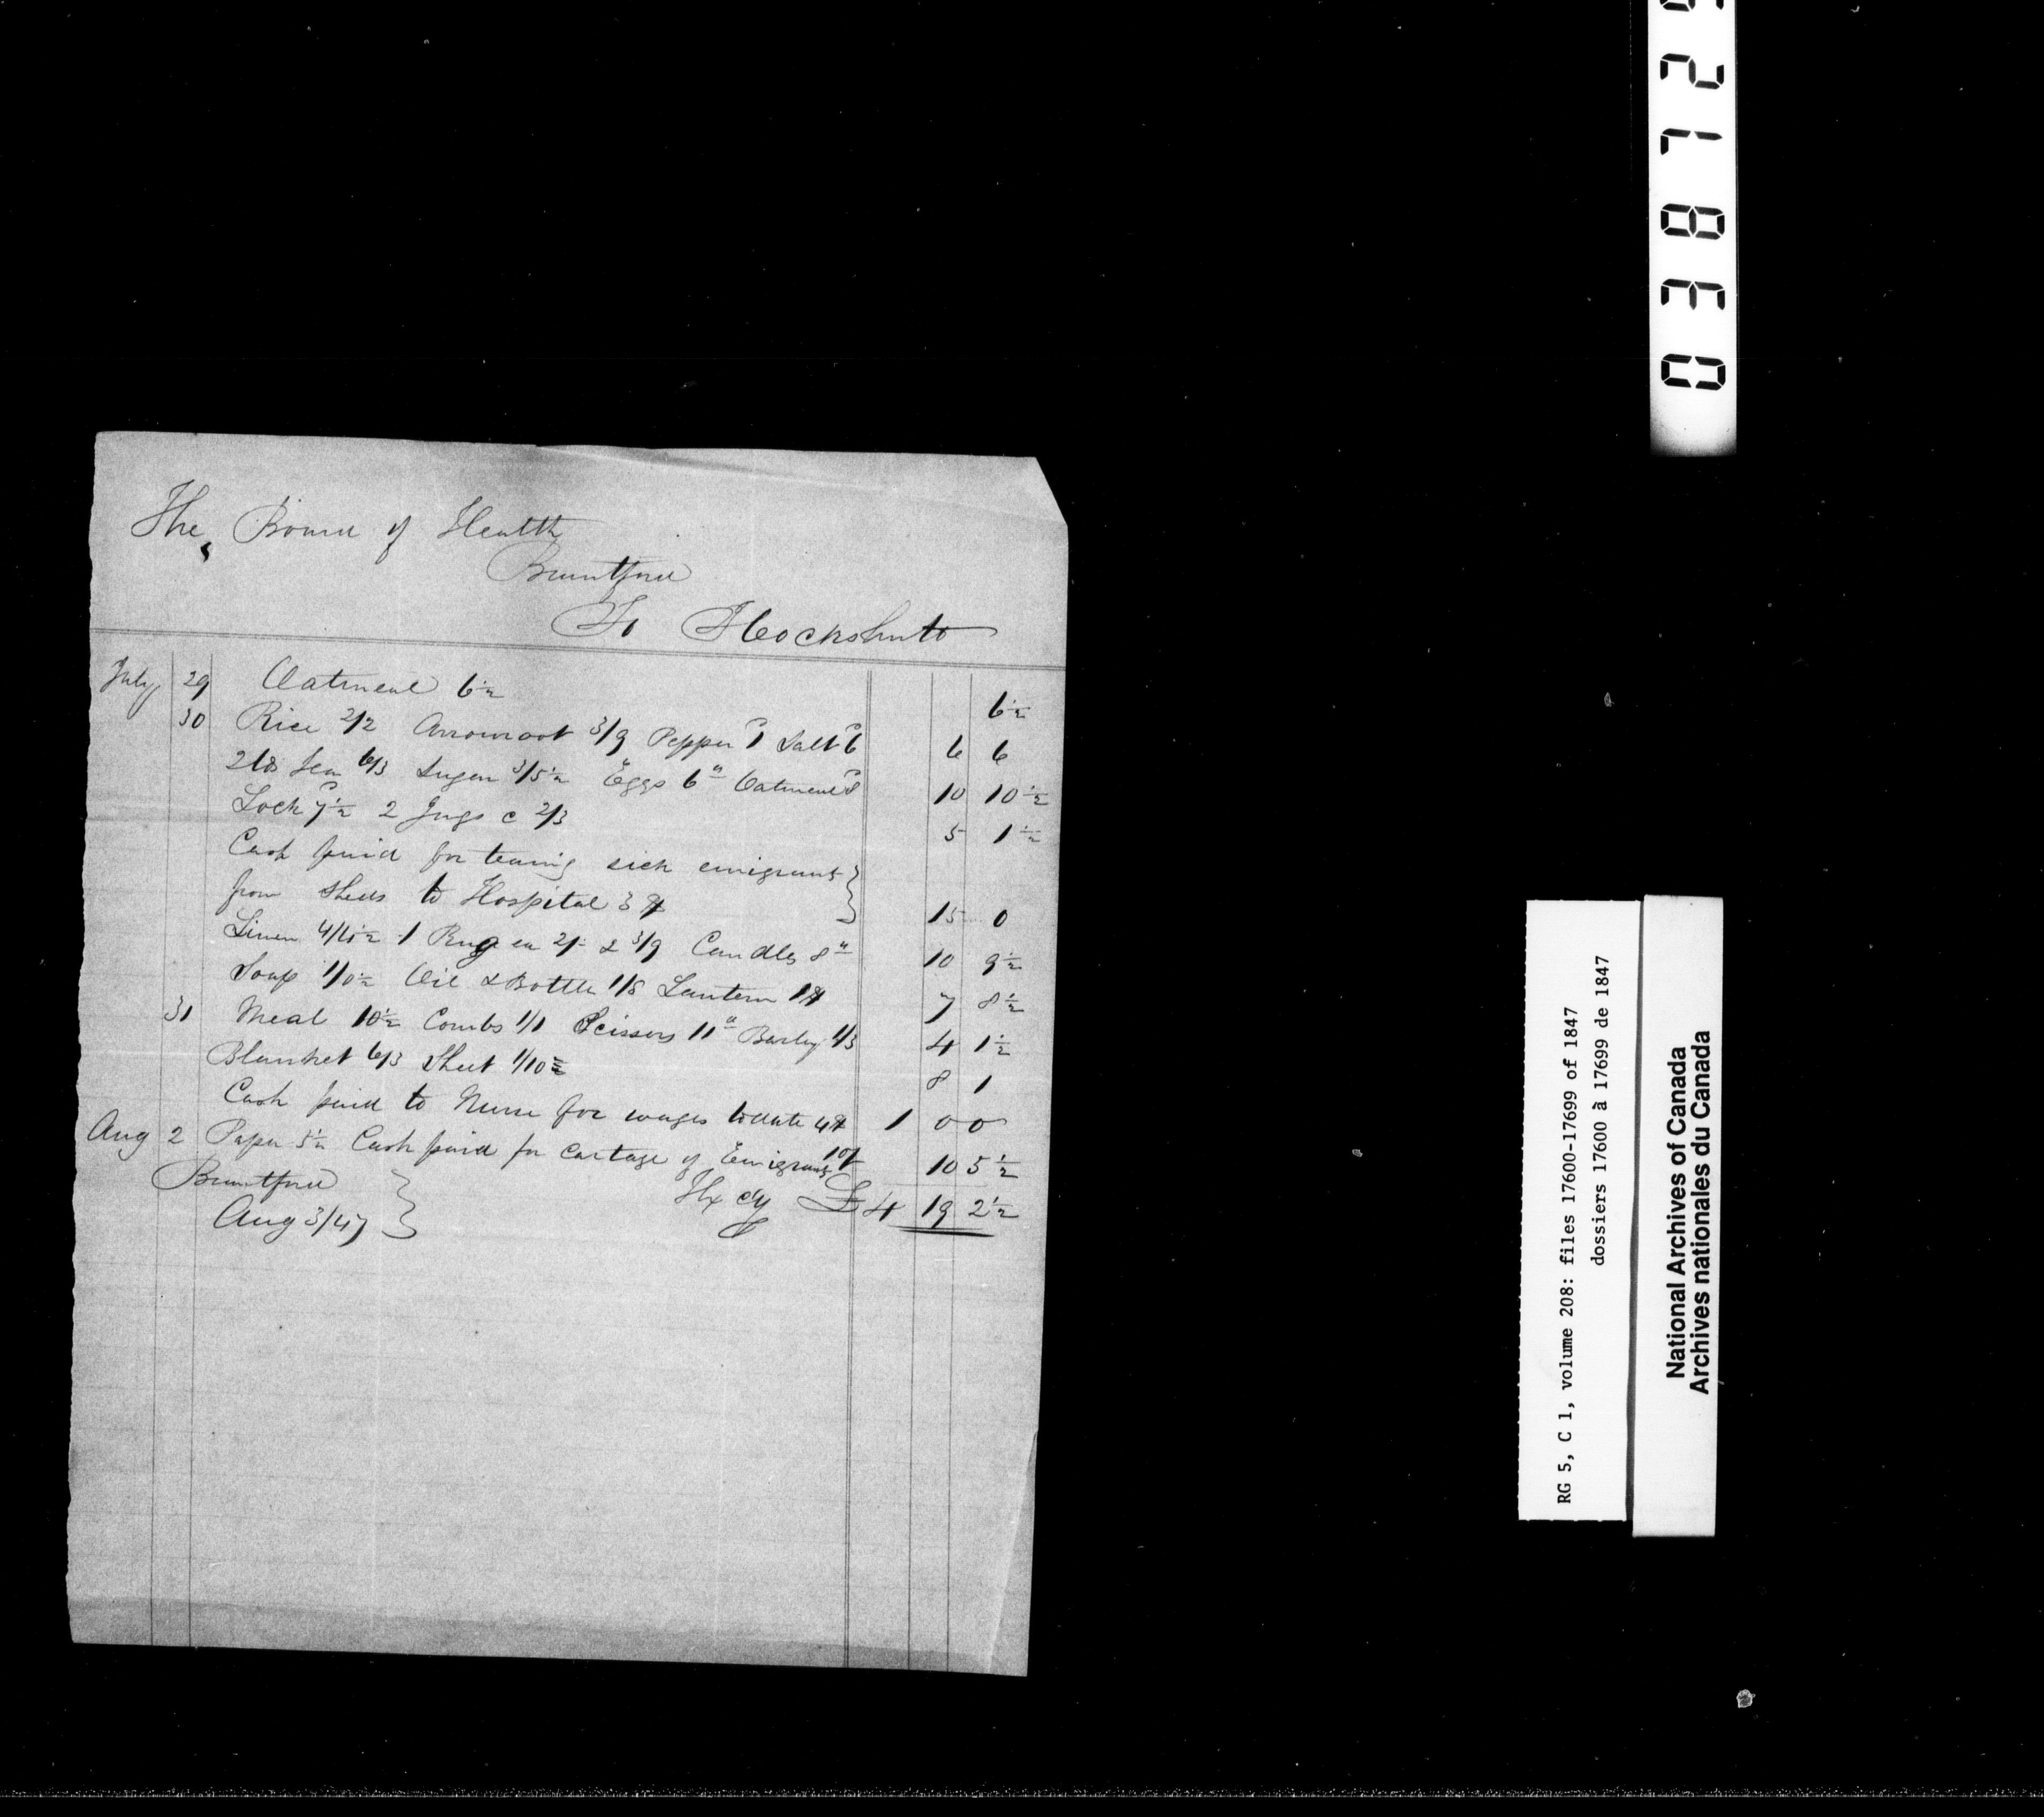 The Board of Health
Brantford
To I Cockshutt
July 29 Oatmeal 6½ 6½
30 Rice 2/2 Arrowroot 3/9 Pepper 1 Salt 6 6 6
2 lbs Tea 6/3 Sugar 3/5½ Eggs 6d Oatmeal 8 10 10½
Lock 7½ 2 Jugs c 2/3 5 1½
Cash paid for teaming sick emigrants
from sheds to Hospital 3$ 15 0
Linen 4/10½ 1 Rug ea 2/- & 3/9 Candles 8d 10 9½
Soap 1/0½ Oil & Bottle 1/8 Lantern 1$ 7 8½
31 Meal 10½ Combs 1/1 Scissors 11d Barley 1/3 4 1½
Blanket 6/3 Sheet 1/10 8 1
Cash paid to Nurse for wages to date 4$ 1 0 0
Aug 2 Paper 5½ Cash paid for Cartage of Emigrants 10/ 10 5½
Brantford Hx cy £4 19 2½
Aug 3/47
RG 5, C 1, volume 208: files 17600-17699 of 1847
dossiers 17600 à 17699 de 1847
National Archives of Canada
Archives nationales du Canada